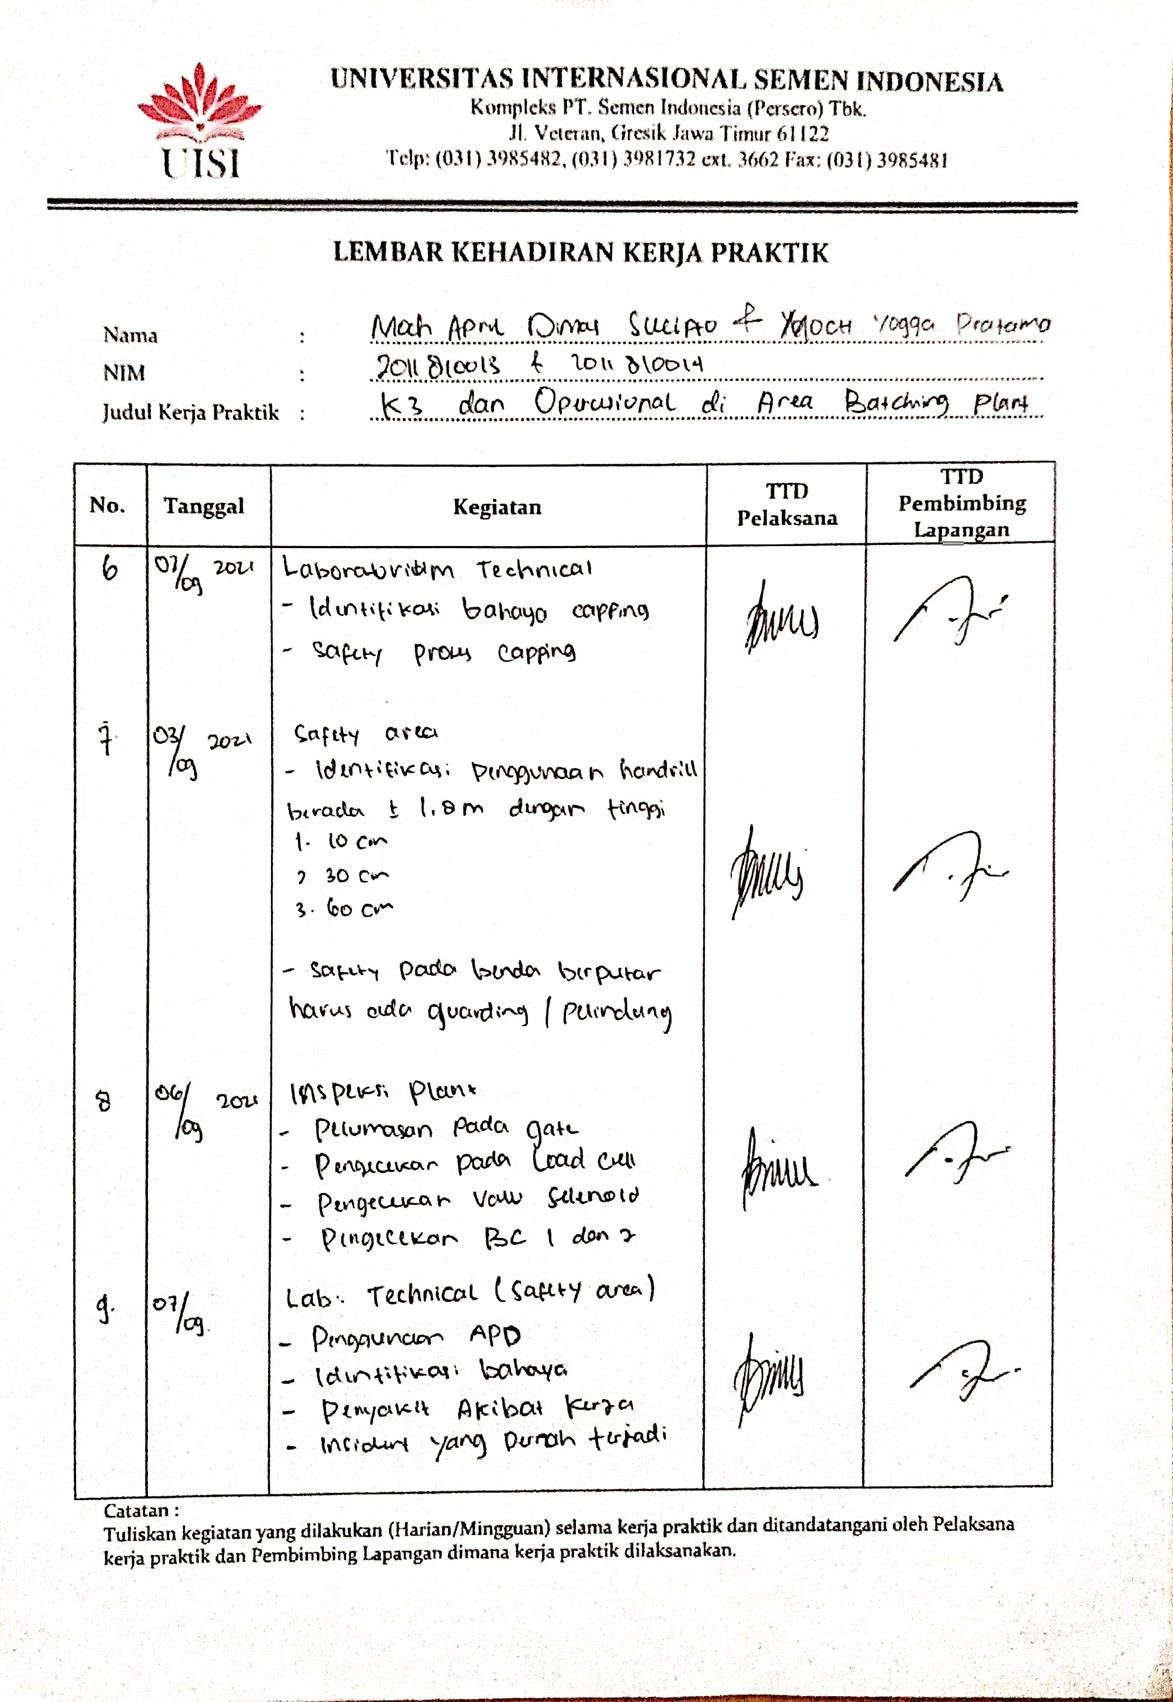 UNIVERSITAS INTERNASIONAL SEMEN INDONESIA
Kompleks PT. Semen Indonesia (Persero) Tbk.
Jl. Veteran, Gresik Jawa Timur 61122
Telp: (031) 3985482, (031) 3981732 ext. 3662 Fax: (031) 3985481
UISI
LEMBAR KEHADIRAN KERJA PRAKTIK
Nama : Moh April Dimas Sucipto & Moch Yogga Pratama
NIM : 2011810013 & 2011810014
Judul Kerja Praktik : K3 dan Operasional di Area Batching Plant
No. Tanggal Kegiatan TTD Pelaksana TTD Pembimbing Lapangan
6 /09 2021 Laboratorium Technical
- Identifikasi bahaya capping
- Safety proses capping
7 03/09 2021 Safety area
- Identifikasi penggunaan handrill
berada ± 1.8 m dengan tinggi
1. 10 cm
2 30 cm
3. 60 cm
- Safety pada benda berputar
harus ada guarding / pelindung
8 06/09 2021 Inspeksi Plant
- Pelumasan pada gate
- Pengecekan pada Load cell
- Pengecekan Valve Selenoid
- Pengecekan BC 1 dan 2
9. 07/09. Lab. Technical (Safety area)
- Penggunaan APD
- Identifikasi bahaya
- Penyakit Akibat Kerja
- Incident yang Pernah terjadi
Catatan :
Tuliskan kegiatan yang dilakukan (Harian/Mingguan) selama kerja praktik dan ditandatangani oleh Pelaksana
kerja praktik dan Pembimbing Lapangan dimana kerja praktik dilaksanakan.